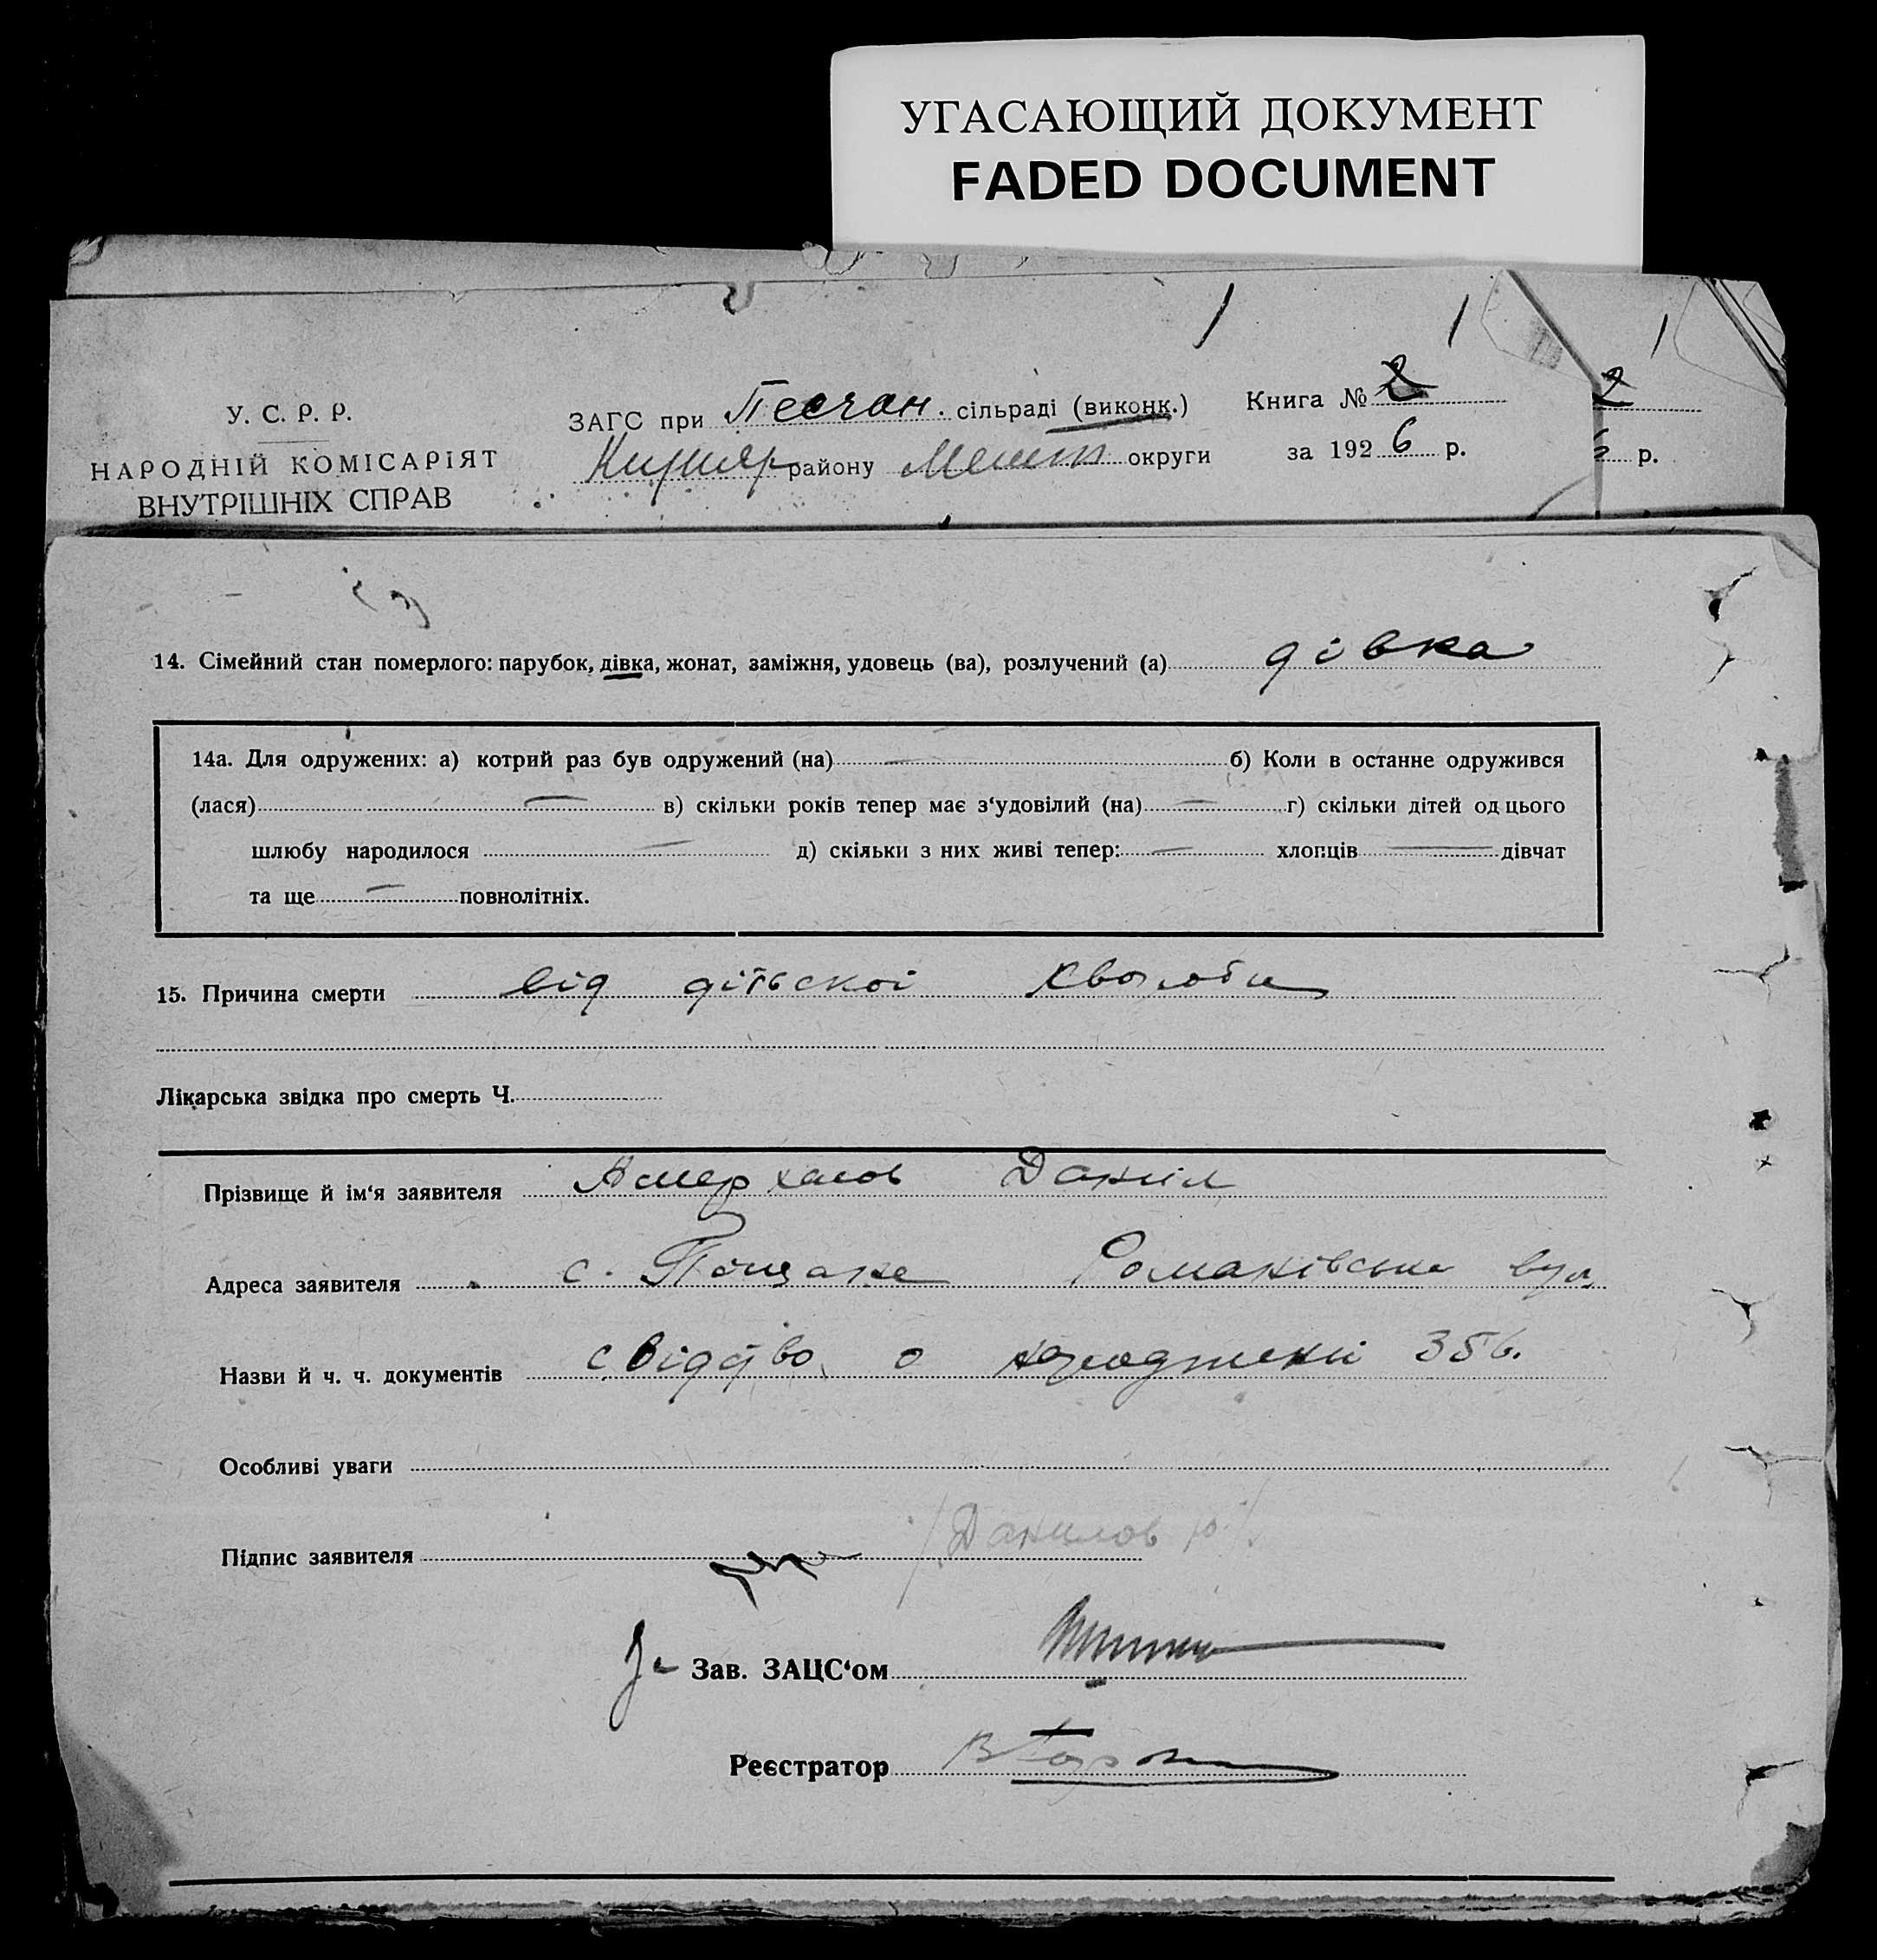 УГАСАЮЩИЙ ДОКУМЕНТ
FADED DOCUMENT
У. С. Р. Р.
НАРОДНІЙ КОМІСАРІЯТ
ВНУТРІШНІХ СПРАВ
ЗАГС при Песчан. сільраді (виконк.)
району округи
Книга № 2
за 1926 р.
2
6 р.
14. Сімейний стан померлого: парубок, дівка, жонат, заміжня, удовець (ва), розлучений (а) дівка
14а. Для одружених: а) котрий раз був одружений (на) — б) Коли в останне одружився
(лася) — в) скільки років тепер має з‘удовілий (на) — г) скільки дітей од цього
шлюбу народилося — д) скільки з них живі тепер: — хлопців — дівчат
та ще — повнолітніх.
15. Причина смерти від дітьскоі хвороби
Лікарська звідка про смерть Ч.
Прізвище й ім‘я заявителя Даніїл
Адреса заявителя с. Романівська вул.
Назви й ч. ч. документів свідцтво о народжені 356.
Особливі уваги
Підпис заявителя /Данилов
За Зав. ЗАЦС‘ом
Реєстратор